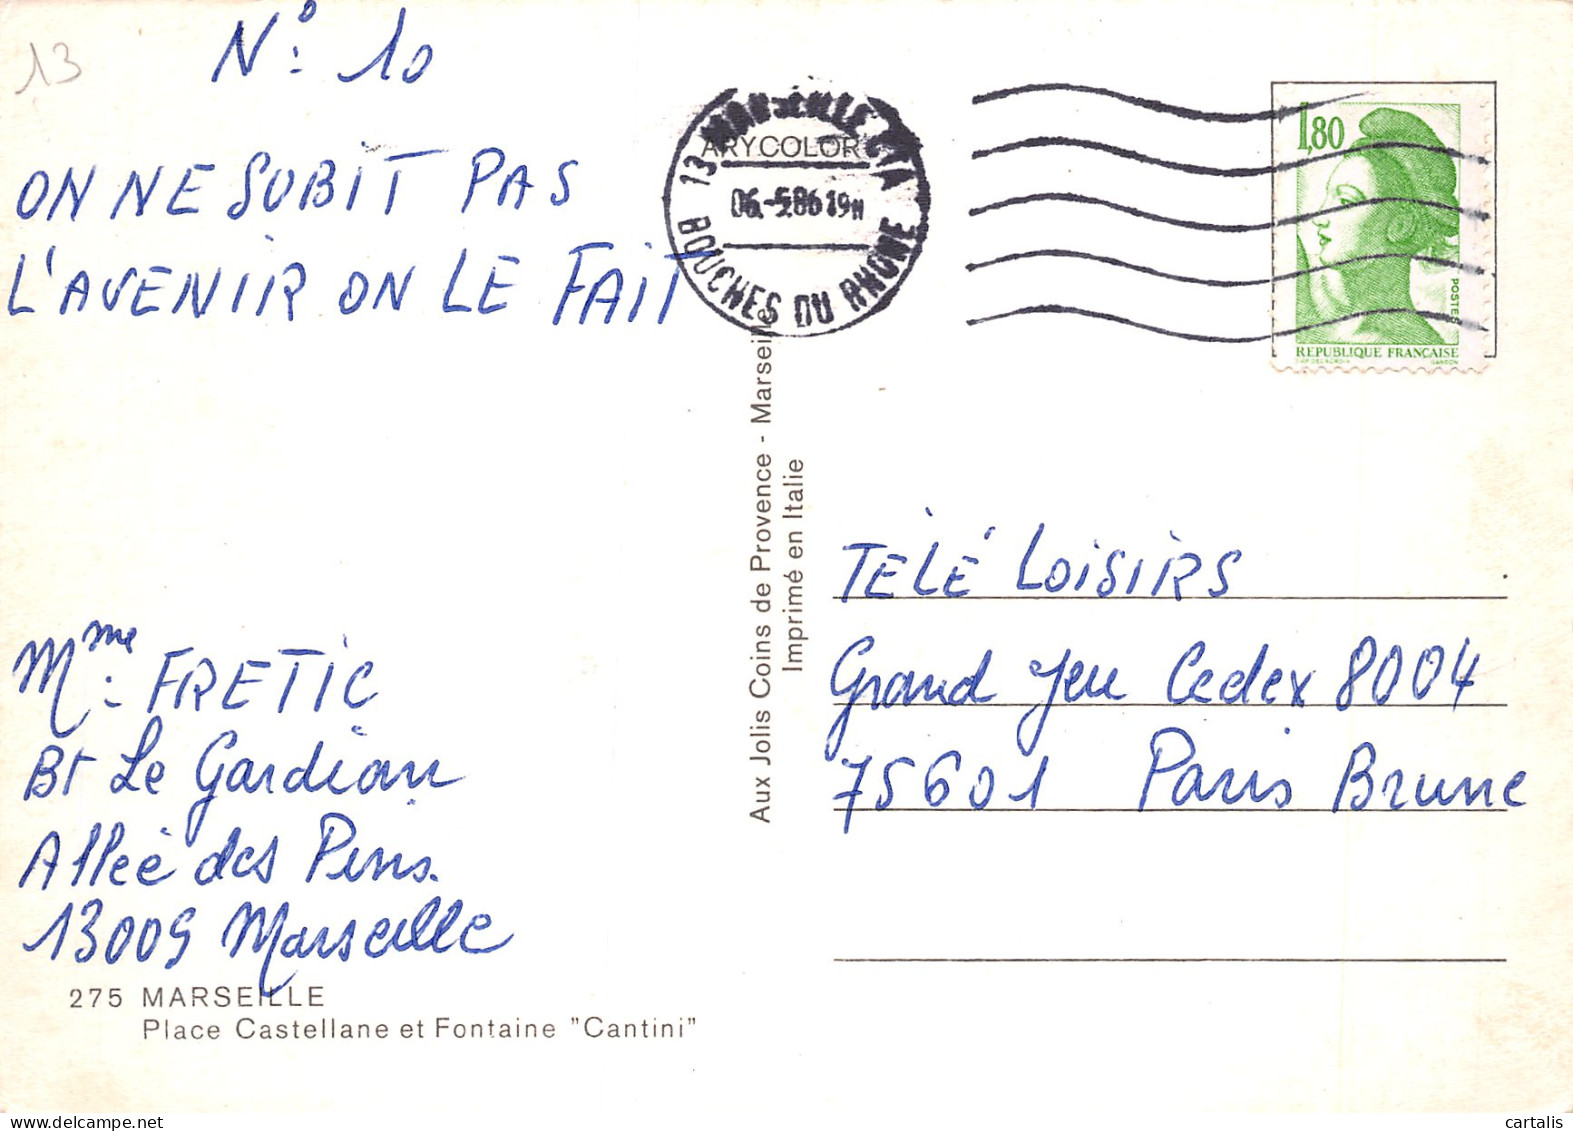 13
N° 10
ON NE SUBIT PAS
L'AVENIR ON LE FAIT
Mme FRETIC
Bt Le Gardian
Allée des Pins.
13009 Marseille
275 MARSEILLE
Place Castellane et Fontaine "Cantini"
ARYCOLOR
13 MARSEILLE CTA
06.-5.86 19H
BOUCHES DU RHONE
Aux Jolis Coins de Provence - Marseille
Imprimé en Italie
1,80
POSTES
REPUBLIQUE FRANÇAISE
GANDON
TÈLÉ LOISIRS
Grand Jeu Cedex 8004
75601 Paris Brune
cartalis